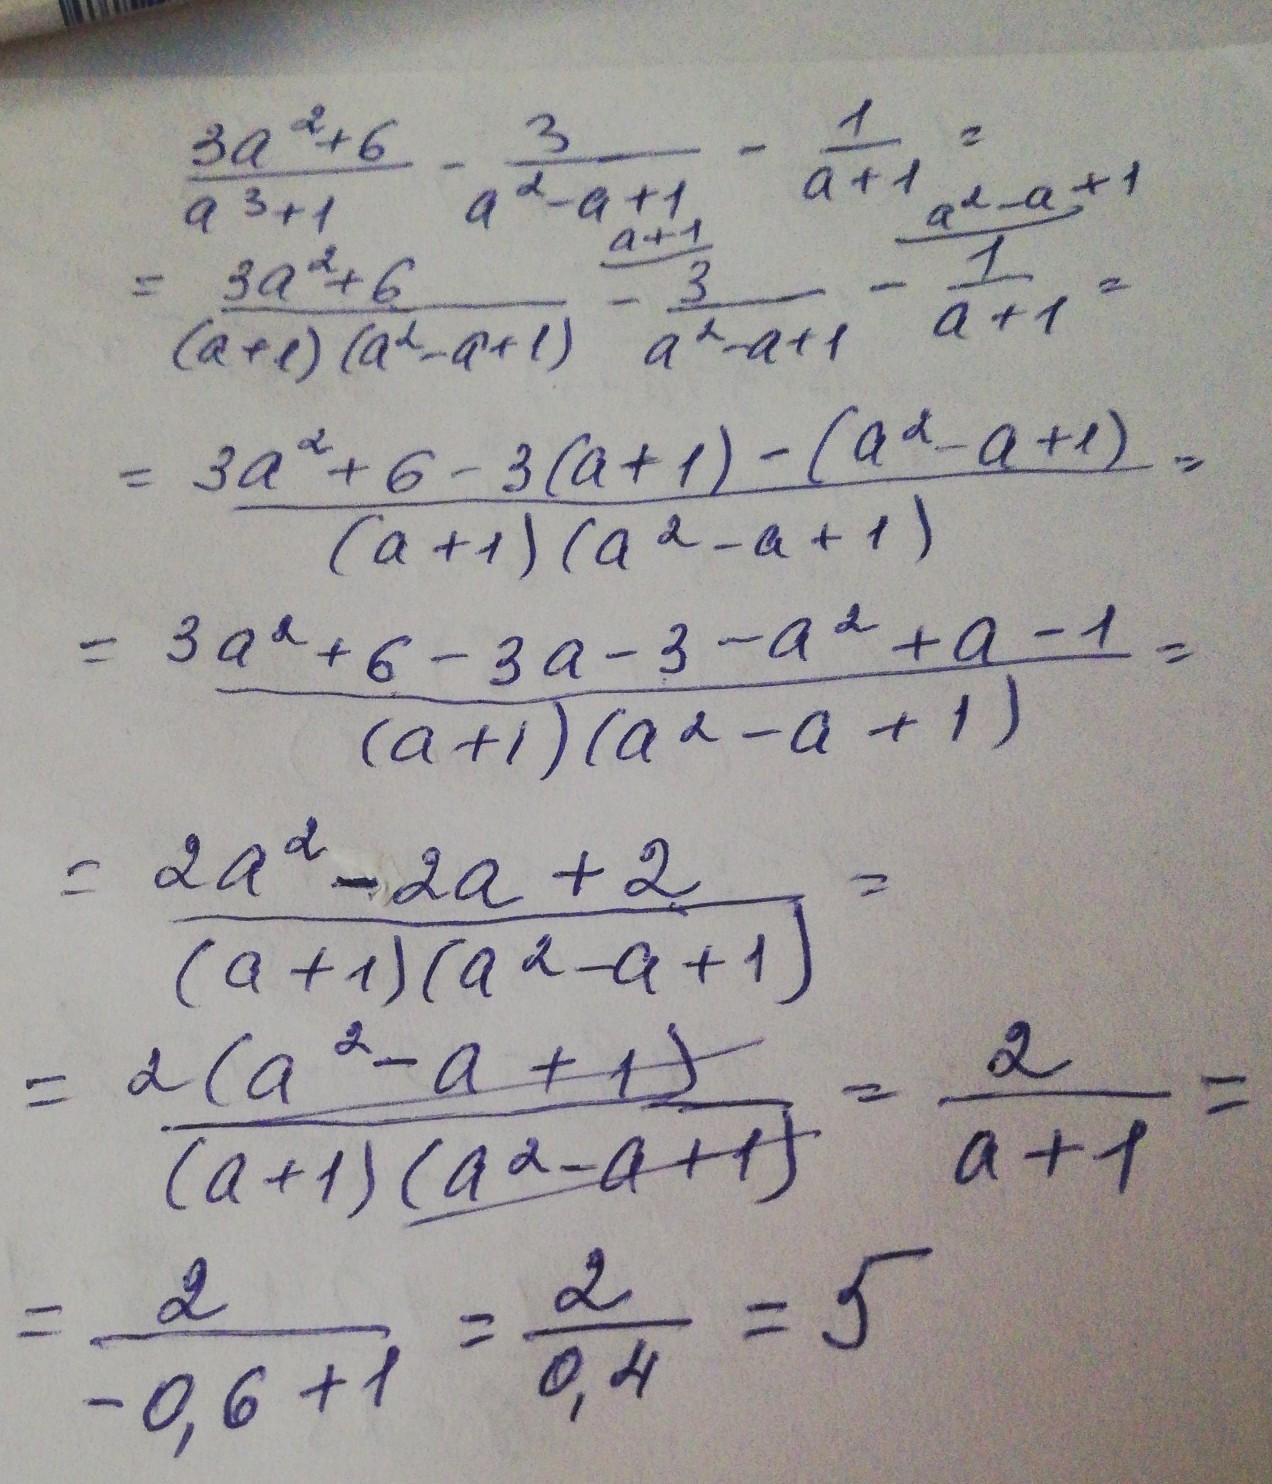 (3a²+6)/(a³+1) - 3/(a²-a+1) - 1/(a+1) =
= (3a²+6)/((a+1)(a²-a+1)) - 3/(a²-a+1) (a+1) - 1/(a+1) (a²-a+1) =
= (3a²+6-3(a+1)-(a²-a+1))/((a+1)(a²-a+1)) =
= (3a²+6-3a-3-a²+a-1)/((a+1)(a²-a+1)) =
= (2a²-2a+2)/((a+1)(a²-a+1)) =
= 2(a²-a+1)/((a+1)(a²-a+1)) = 2/(a+1) =
= 2/(-0,6+1) = 2/0,4 = 5